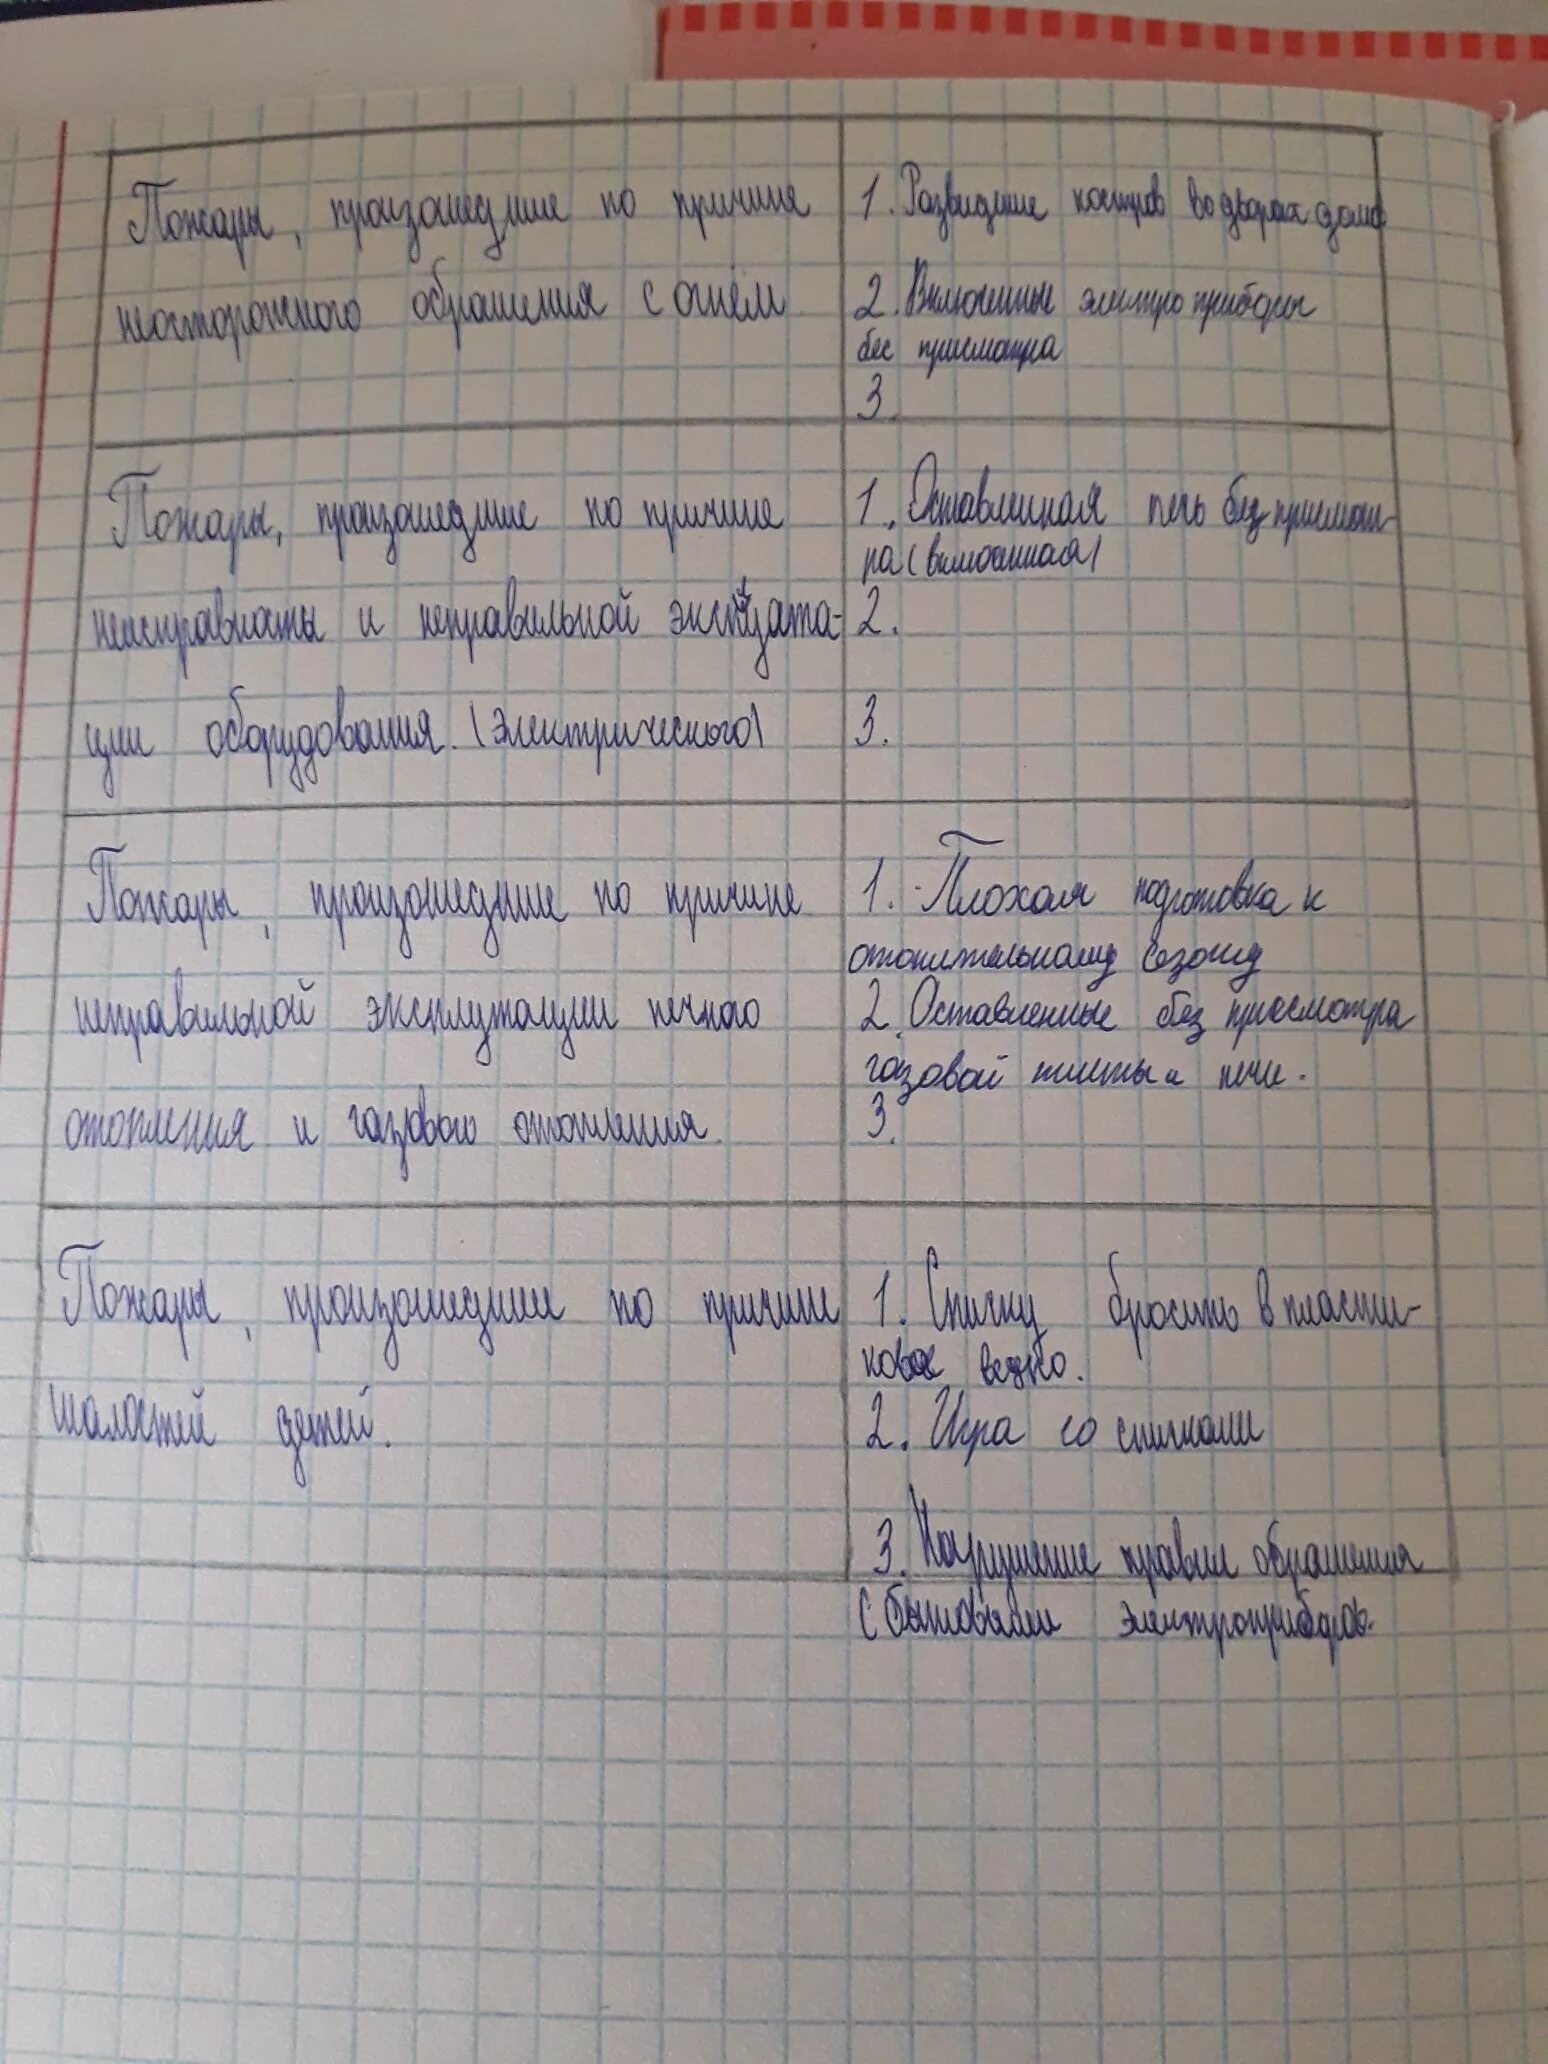 Пожары, произошедшие по причине
неосторожного обращения с огнём
1. Развидение костров во дворах дома
2. Включенные электро приборы
бес присмотра
3.
Пожары, произошедшие по причине
неисправности и неправильной эксплуата-
ции оборудования. (электрического)
1. Оставленная печь без присмот-
ра (включенная)
2.
3.
Пожары, произошедшие по причине
неправильной эксплуатации печного
отопления и газового отопления.
1. Плохая подготовка к
отопительному сезону
2. Оставленные без присмотра
газовой плиты и печи.
3.
Пожары, произошедшии по причине
шалостей детей.
1. Спичку бросить в пласти-
ковое ведро.
2. Игра со спичками
3. Нарушение правил обращения
с бытовыми электроприборов.